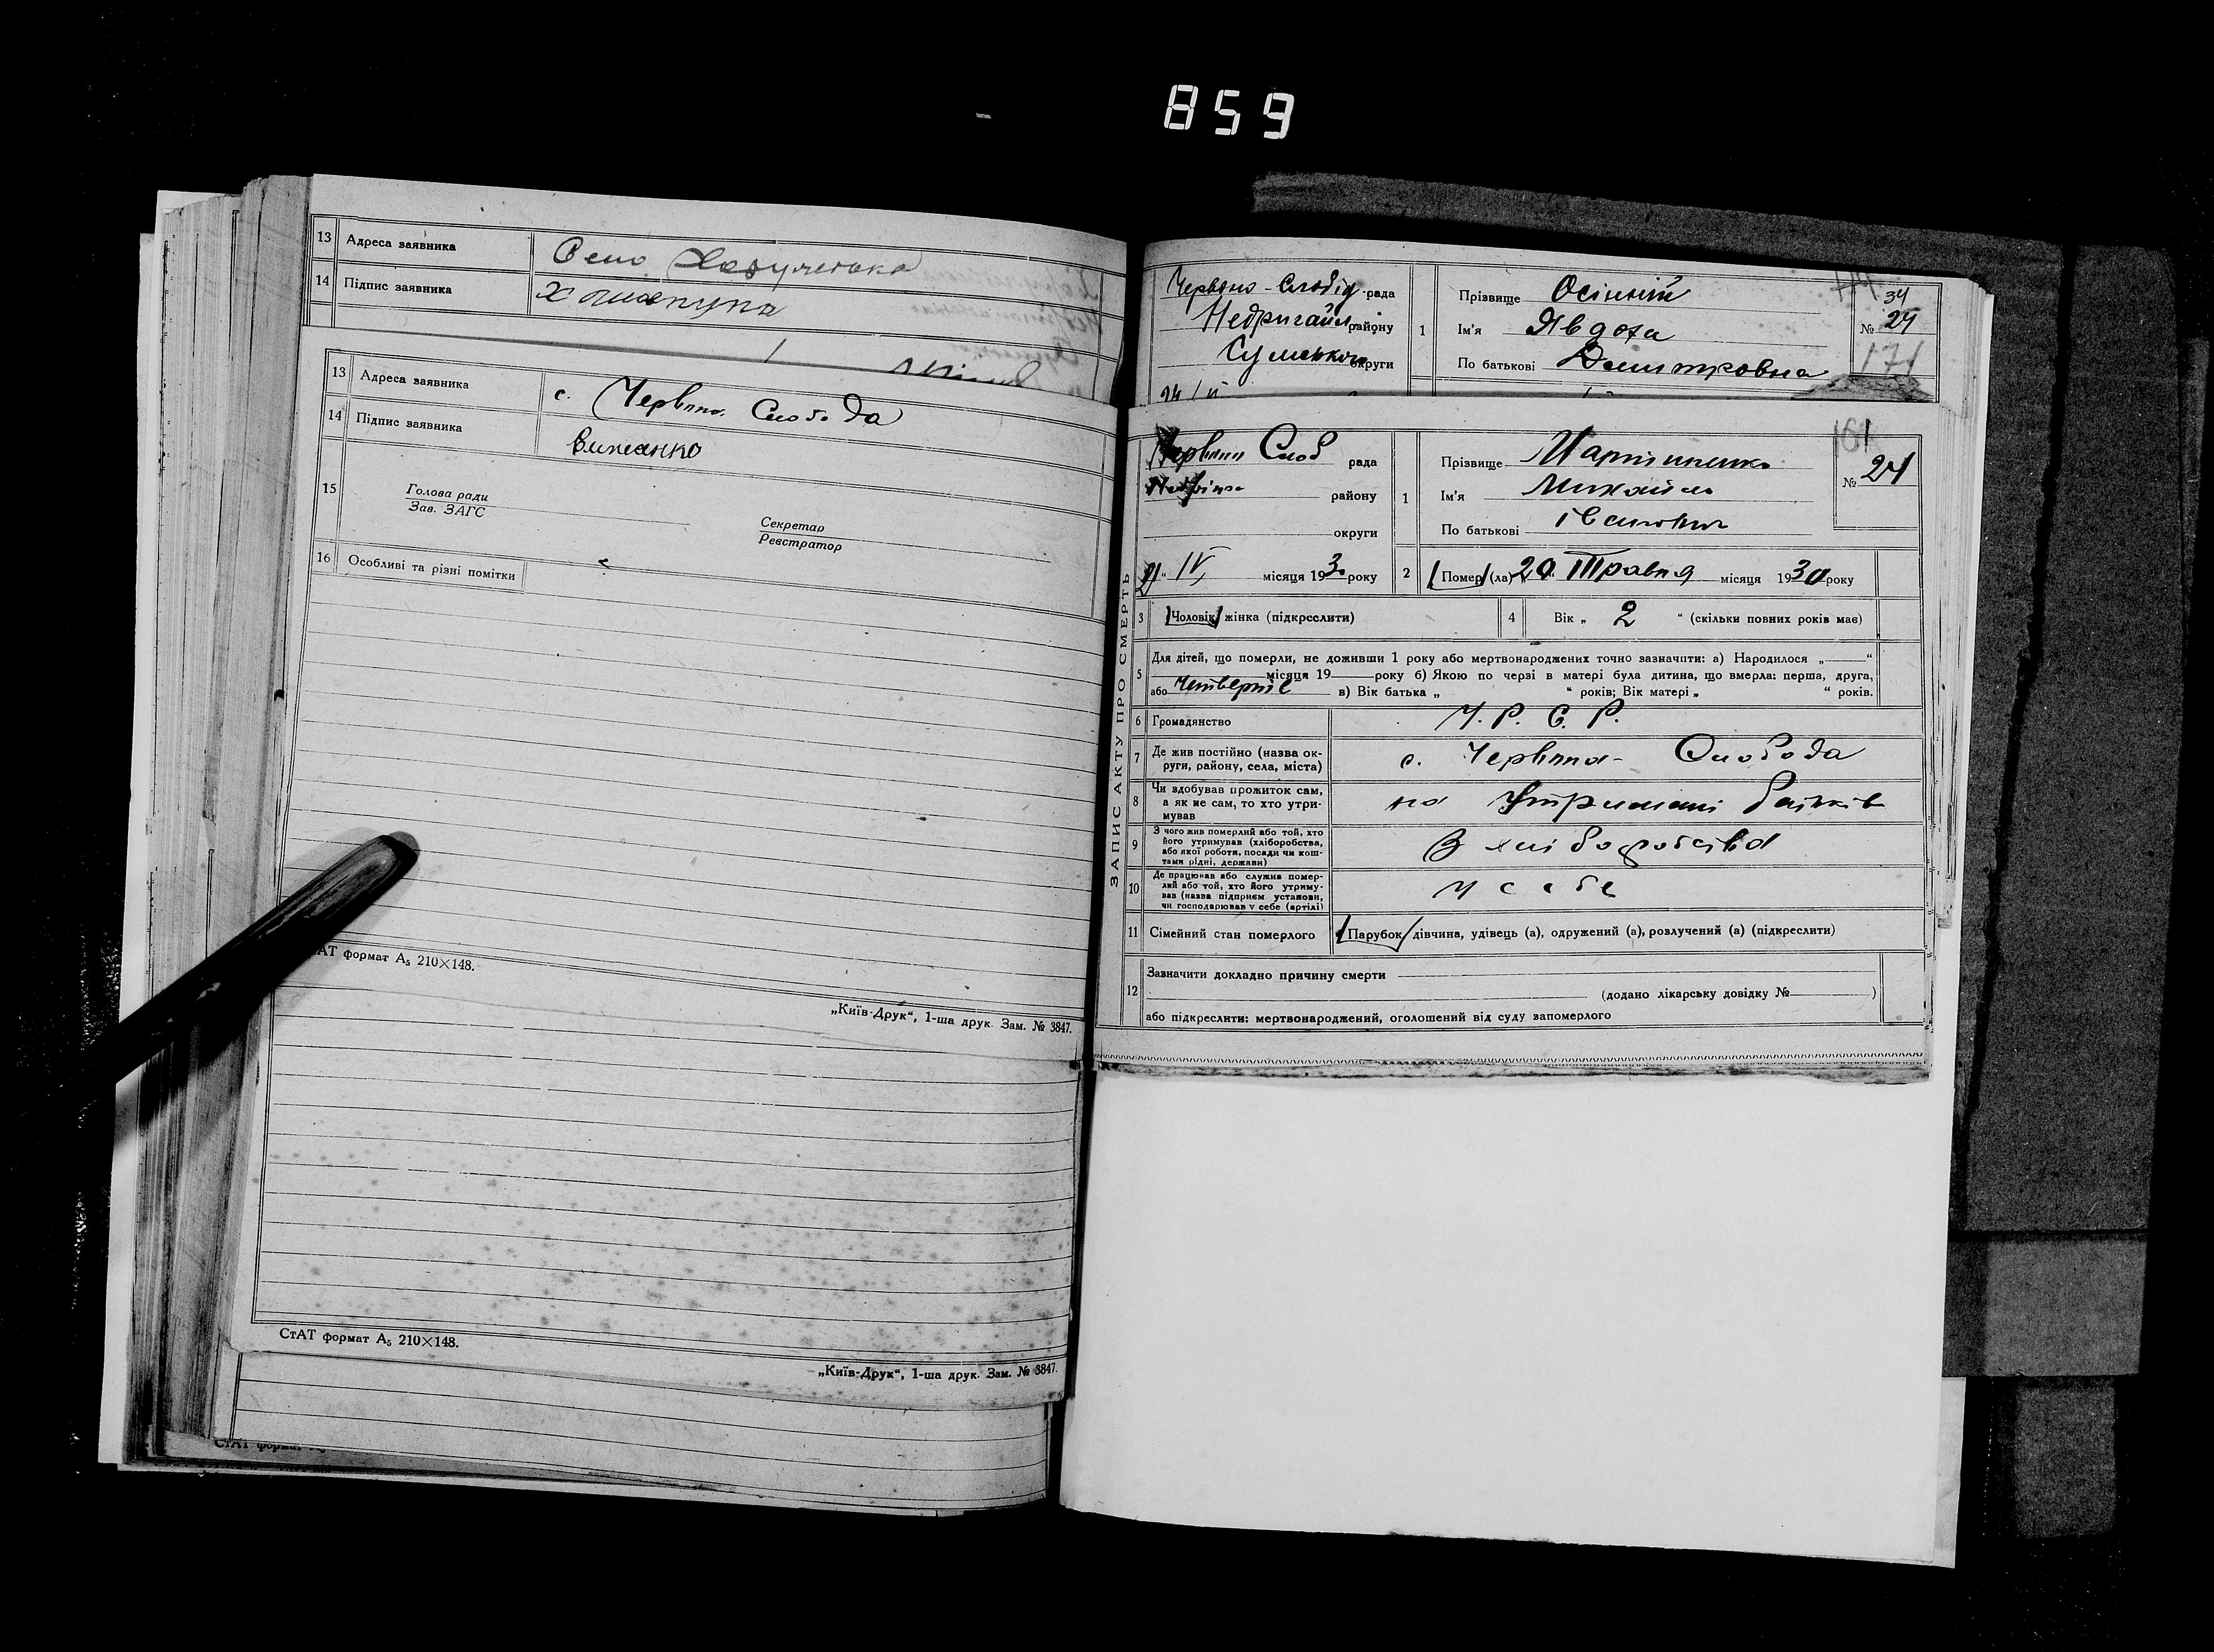 859
13 Адреса заявника Село
14 Підпис заявника
13 Адреса заявника с. Червона Слобода
14 Підпис заявника
15 Голова ради
Зав. ЗАГС
Секретар
Реєстратор
16 Особливі та різні помітки
СтАТ формат А5 210×148.
„Київ-Друк“, 1-ша друк. Зам. № 3847.
СтАТ формат А5 210×148.
„Київ-Друк“, 1-ша друк. Зам. № 3847.
Червоно-Слобід рада
Недригайл. району
Сумської округи
1 Прізвище Осіній
Ім'я Явдоха
По батькові Дмитровна
34
№ 24
171
ЗАПИС АКТУ ПРО СМЕРТЬ
Червона Слоб рада
району
округи
21 IV місяця 1930 року
1 Прізвище Мартиненко
Ім'я Михайло
По батькові Іванович
161
№ 24
2 Помер (ла) 20 Травня місяця 1930 року
3 Чоловік, жінка (підкреслити)
4 Вік „ 2 “ (скільки повних років має)
5 Для дітей, що померли, не доживши 1 року або мертвонароджених точно зазначити: а) Народилося „ “
місяця 19 року б) Якою по черзі в матері була дитина, що вмерла: перша, друга,
або Четверте в) Вік батька „ “ років; Вік матері „ “ років.
6 Громадянство У. Р. С. Р.
7 Де жив постійно (назва ок-
руги, району, села, міста) с. Червона-Слобода
8 Чи здобував прожиток сам,
а як не сам, то хто утри-
мував на утримані батьків
9 З чого жив померлий або той, хто
його утримував (хліборобства,
або якої роботи, посади чи кош-
тами рідні, держави) З хліборобства
10 Де працював або служив помер-
лий або той, хто його утриму-
вав (назва підприєм установи,
чи господарював у себе (артілі) у себе
11 Сімейний стан померлого Парубок, дівчина, удівець (а), одружений (а), розлучений (а) (підкреслити)
12 Зазначити докладно причину смерти
(додано лікарську довідку № )
або підкреслити: мертвонароджений, оголошений від суду запомерлого